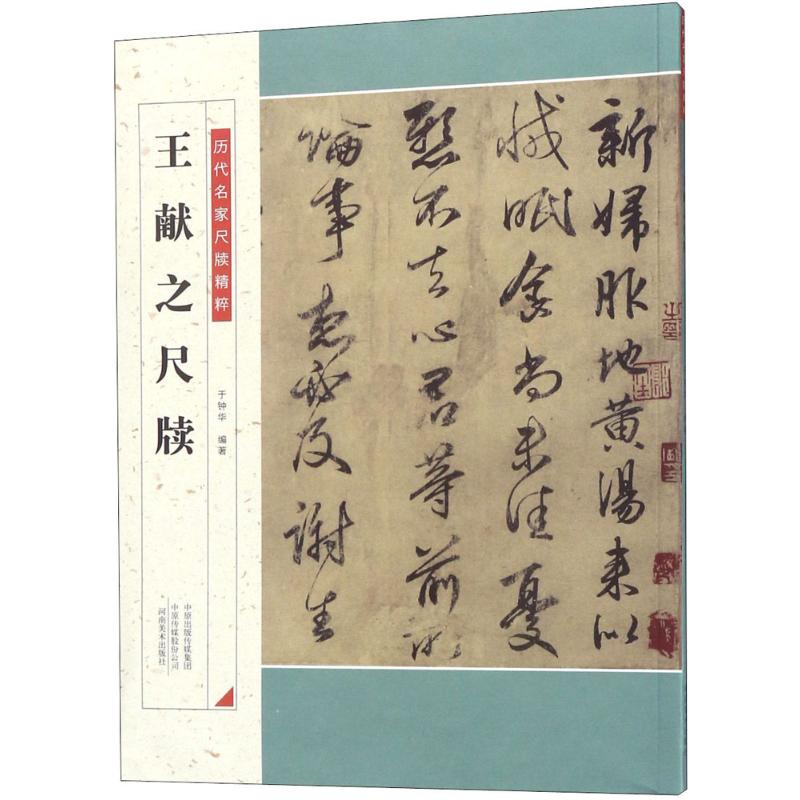 新婦服地黄湯来似
减眠食尚未佳憂
懸不去心君等前所
論事想必及謝生
历代名家尺牍精粹
王献之尺牍
于钟华 编著
中原出版传媒集团
中原传媒股份公司
河南美术出版社